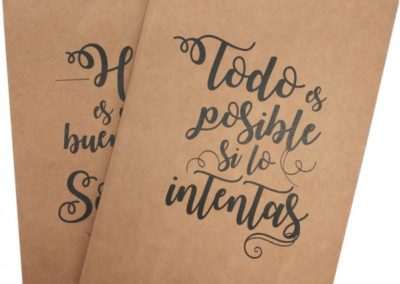 H
es
buen
S
Todo es
posible
si lo
intentas